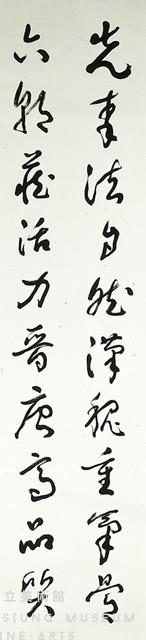 先秦法自然漢魏重氣骨
六朝蘊活力晉唐高品質
立美術館
SIUNG MUSEUM
INE ARTS